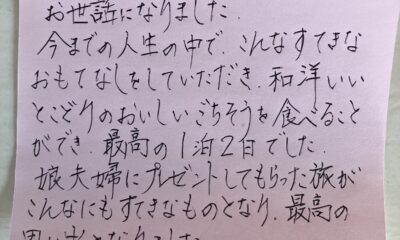 お世話になりました.
今までの人生の中で.こんなすてきな
おもてなしをしていただき.和洋いい
とこどりのおいしいごちそうを食べること
ができ.最高の1泊2日でした.
娘夫婦にプレゼントしてもらった旅が
こんなにもすてきなものとなり.最高の
思い出となりました